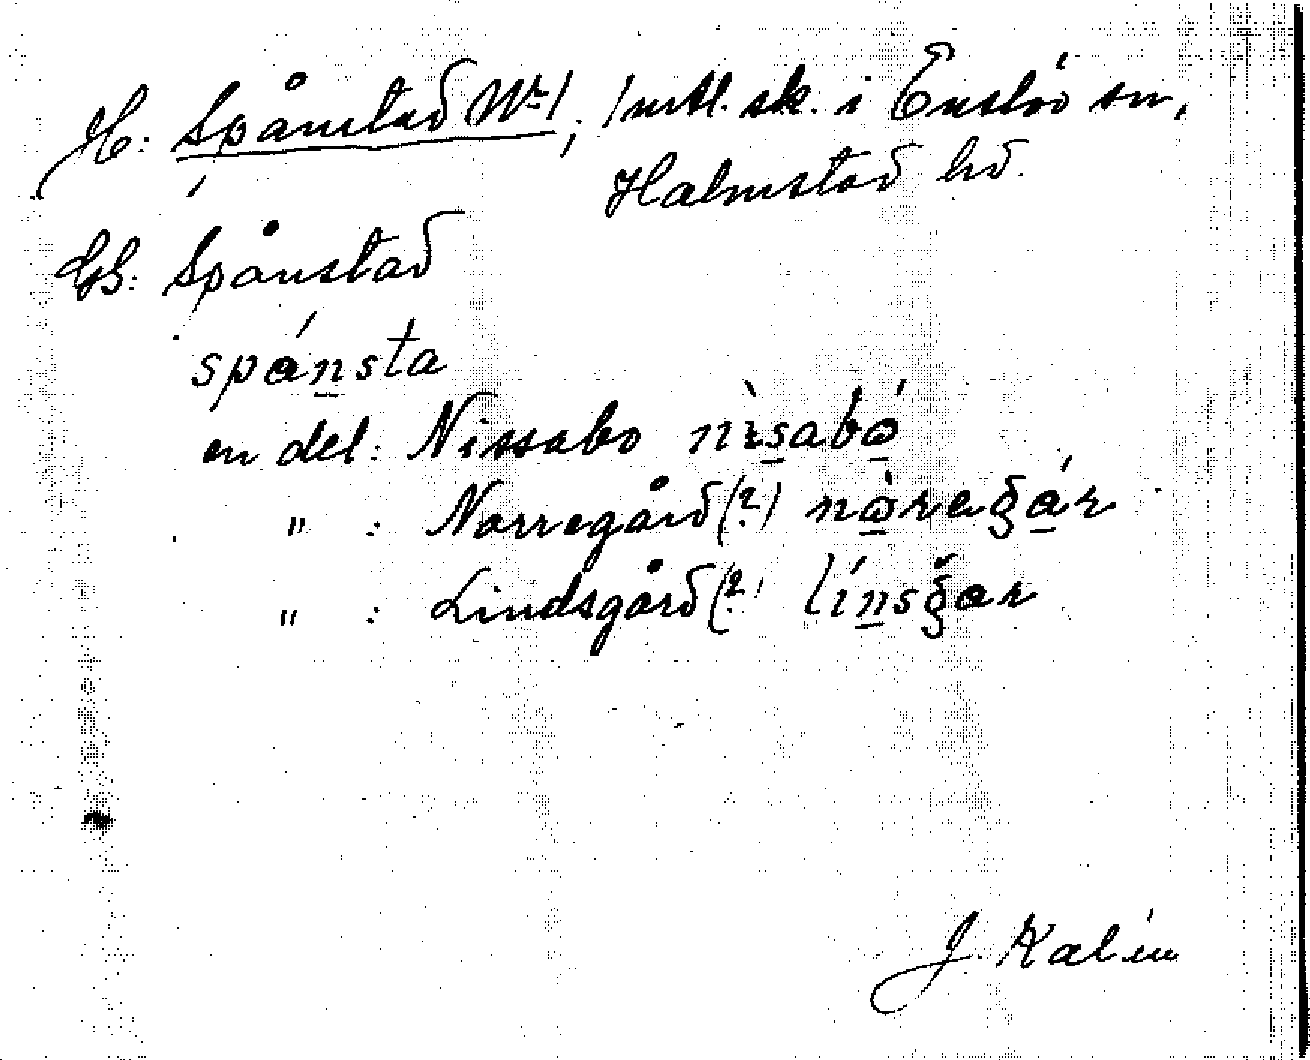 H: Spånstad Nr 1, 1 mtl. sk. i Enslöv sn,
Halmstad hd.
GS: Spånstad
spánsta
en del: Nissabo nìsabó
" : Norregård (?) nòregár
" : Lindsgård (?) línsgar
J. Kalén